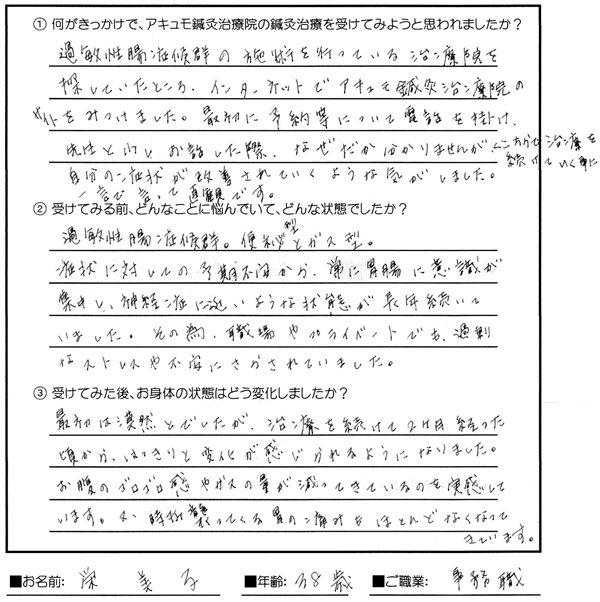 ① 何がきっかけで、アキュモ鍼灸治療院の鍼灸治療を受けてみようと思われましたか？
過敏性腸症候群の施術を行っている治療院を
探していたところ、インターネットでアキュモ鍼灸治療院の
サイトをみつけました。最初に予約等について電話を掛け、
先生と少しお話した際、なぜだか分かりませんが、ここちらで治療を
続けていく事に
自分の症状が改善されていくような気がしました。
一言で言って直観です。
② 受けてみる前、どんなことに悩んでいて、どんな状態でしたか？
過敏性腸症候群。便秘型とガス型。
症状に対しての予期不安から、常に胃腸に意識が
集中し、神経症に近いような状態が長年続いて
いました。その為、職場やプライベートでも、過剰
なストレスや不安にさらされていました。
③ 受けてみた後、お身体の状態はどう変化しましたか？
最初は漠然とでしたが、治療を続けて2ヶ月経った
頃から、はっきりと変化が感じられるようになりました。
お腹のゴロゴロ感やガスの量が減ってきているのを実感して
います。又、時折襲ってくる胃の痛みもほとんどなくなって
きています。
■お名前: 栄 美子 ■年齢: 38歳 ■ご職業: 事務職